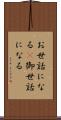 お世話にな
る 御世話
になる